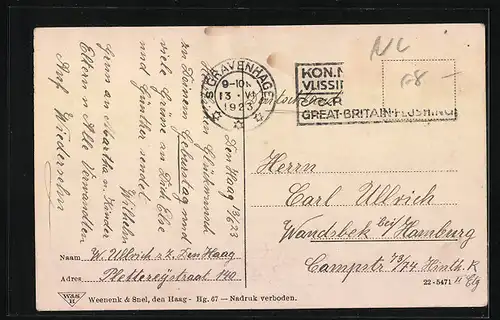 NL
68-
'S GRAVENHAGE
9-10 N
13 VI
1923
KON.M
VLISSI
GREAT-BRITAIN-FLUSHING
Den Haag 13/6 23
Herzlichen Glückwunsch
zu Deinem Geburtstag und
viele Grüsse an Dich Else
und Günther sendet
Wilhelm
Gruss an Martha u. Kinder
Eltern u. Alle Verwandten
Auf Wiedersehn
Herrn
Carl Ullrich
Wandsbek bei/ Hamburg
Campstr 73/74 Hinth. R
II Etg
Naam W. Ullrich z.Z. Den Haag
Adres Plettereystraat 140
Weenenk & Snel, den Haag - Hg. 67 — Nadruk verboden.
22-5471